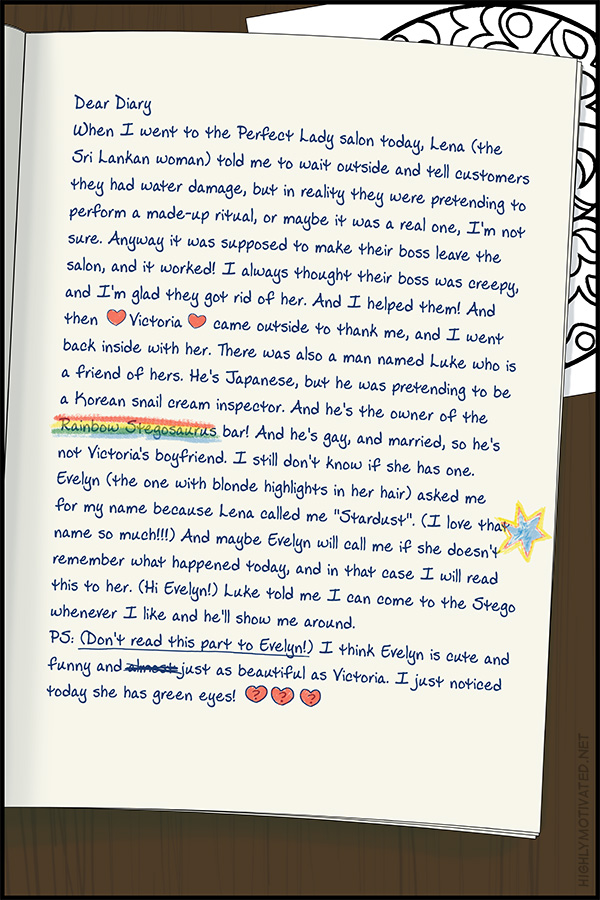 Dear Diary
When I went to the Perfect Lady salon today, Lena (the
Sri Lankan woman) told me to wait outside and tell customers
they had water damage, but in reality they were pretending to
perform a made-up ritual, or maybe it was a real one, I'm not
sure. Anyway it was supposed to make their boss leave the
salon, and it worked! I always thought their boss was creepy,
and I'm glad they got rid of her. And I helped them! And
then Victoria came outside to thank me, and I went
back inside with her. There was also a man named Luke who is
a friend of hers. He's Japanese, but he was pretending to be
a Korean snail cream inspector. And he's the owner of the
Rainbow Stegosaurus bar! And he's gay, and married, so he's
not Victoria's boyfriend. I still don't know if she has one.
Evelyn (the one with blonde highlights in her hair) asked me
for my name because Lena called me "Stardust". (I love that
name so much!!!) And maybe Evelyn will call me if she doesn't
remember what happened today, and in that case I will read
this to her. (Hi Evelyn!) Luke told me I can come to the Stego
whenever I like and he'll show me around.
PS: (Don't read this part to Evelyn!) I think Evelyn is cute and
funny and almost just as beautiful as Victoria. I just noticed
today she has green eyes! ? ? ?
HIGHLYMOTIVATED.NET